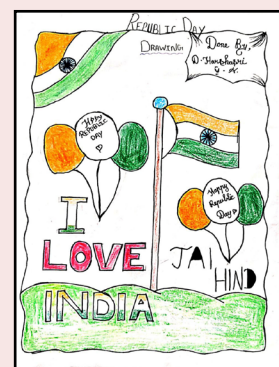 REPUBLIC DAY
DRAWING
Done By,
Happy
REPUBLIC
DAY
Happy
Republic
Day
I
LOVE
INDIA
JAI
HIND